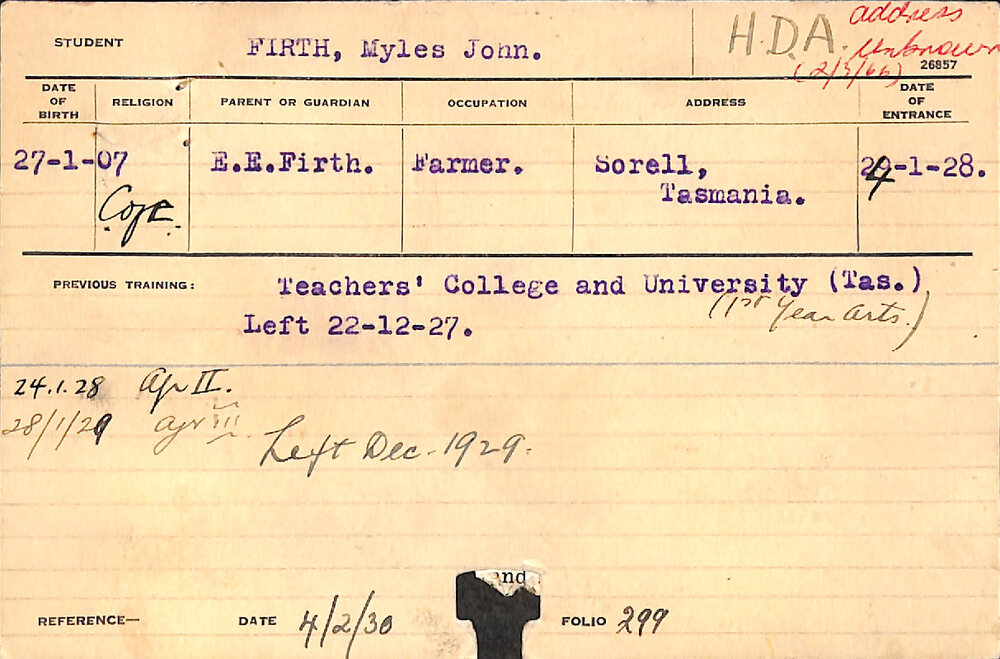 STUDENT FIRTH, Myles John. H.D.A. address
unknown
(2/3/66) 26857
DATE OF BIRTH RELIGION PARENT OR GUARDIAN OCCUPATION ADDRESS DATE OF ENTRANCE
27-1-07 E.E.Firth. Farmer. Sorell, 24-1-28.
Tasmania.
C of E.
PREVIOUS TRAINING: Teachers' College and University (Tas.)
(1st Year Arts.)
Left 22-12-27.
24.1.28 Agr II.
28/1/29 Agr III
Left Dec. 1929.
and
REFERENCE— DATE 4/2/30 FOLIO 299